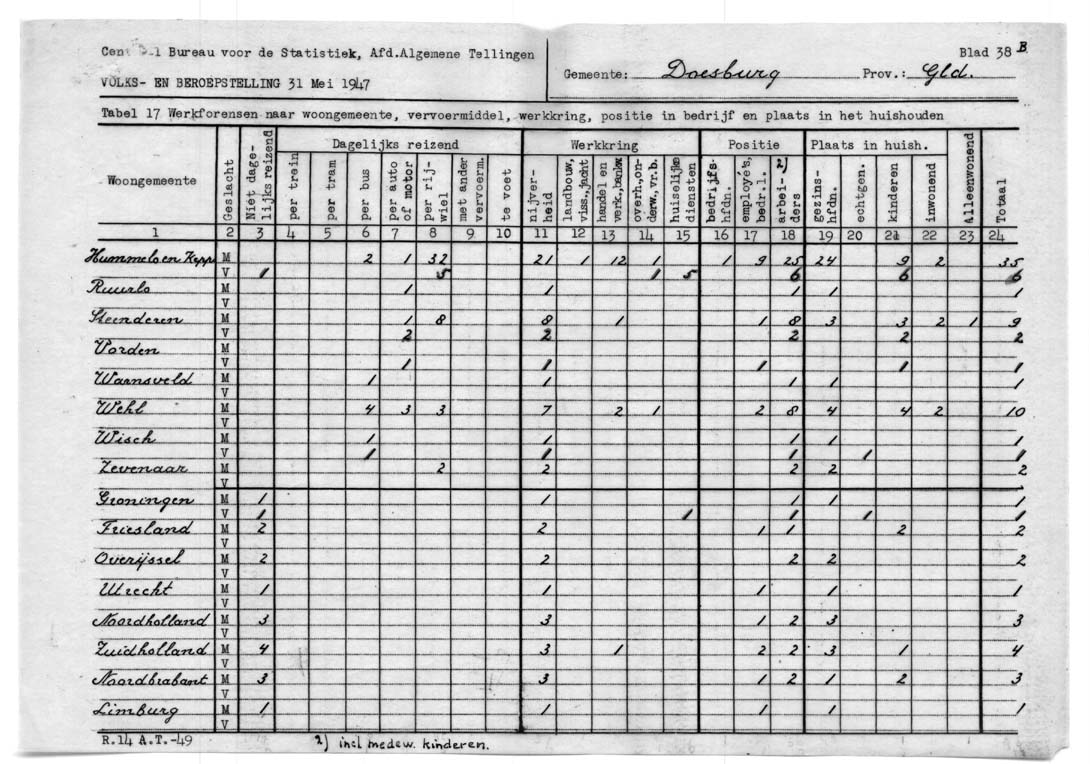 Centraal Bureau voor de Statistiek, Afd.Algemene Tellingen
VOLKS- EN BEROEPSTELLING 31 Mei 1947
Gemeente: Doesburg Prov.: Gld.
Blad 38 B
Tabel 17 Werkforensen naar woongemeente, vervoermiddel, werkkring, positie in bedrijf en plaats in het huishouden
Woongemeente Geslacht Niét dage-lijks reizend Dagelijks reizend Werkkring Positie Plaats in huish. Alleenwonend Totaal
per trein per tram per bus per auto of motor per rij-wiel met ander vervoerm. te voet nijver-heid landbouw, viss.,jacht handel en verk.,bankw. overh.,on-derw.,vr.b. huiselijke diensten bedrijfs-hfdn. employé's, bedr.l. arbei-2) ders gezins-hfdn. echtgen. kinderen inwonend
1 2 3 4 5 6 7 8 9 10 11 12 13 14 15 16 17 18 19 20 21 22 23 24
Hummelo en Kepp. M 2 1 32 21 1 12 1 1 9 25 24 9 2 35
V 1 5 1 5 6 6 6
Ruurlo M 1 1 1 1 1
V
Steenderen M 1 8 8 1 1 8 3 3 2 1 9
V 2 2 2 2 2
Vorden M
V 1 1 1 1 1
Warnsveld M 1 1 1 1 1
V
Wehl M 4 3 3 7 2 1 2 8 4 4 2 10
V
Wisch M 1 1 1 1 1
V 1 1 1 1 1
Zevenaar M 2 2 2 2 2
V
Groningen M 1 1 1 1 1
V 1 1 1 1 1
Friesland M 2 2 1 1 2 2
V
Overijssel M 2 2 2 2 2
V
Utrecht M 1 1 1 1 1
V
Noordholland M 3 3 1 2 3 3
V
Zuidholland M 4 3 1 2 2 3 1 4
V
Noordbrabant M 3 3 1 2 1 2 3
V
Limburg M 1 1 1 1 1
V
R.14 A.T.-49
2) incl medew. kinderen.